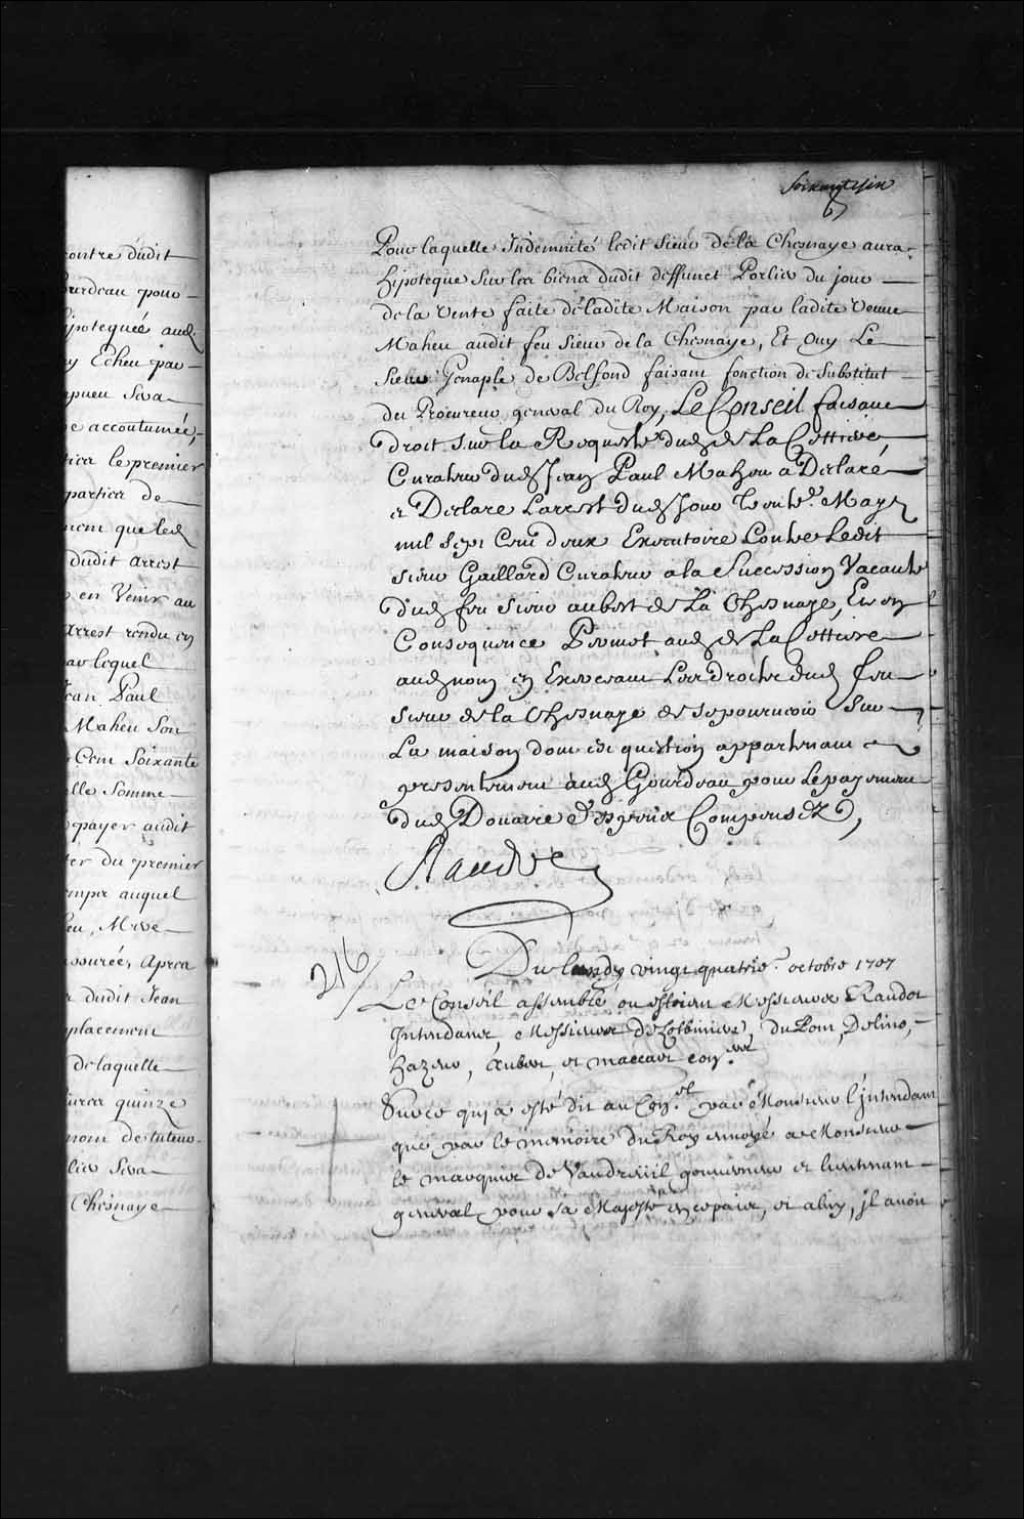 contre dudit
Gourdeau pour
hipotequeé aud.
Echeu par
Siva
accoutumeé,
le premier
partiea de
que led
dudit arrest
en Venir au
arrest rendu en
par lequel
Jean Paul
Maheu Son
Cent Soixante
elle Somme
payer audit
du premier
auquel
assureé, Aprea
dudit Jean
placement
de laquelle
quinze
nom de tuteur
Siva
Chesnaye
Soixante six
Pour laquelle Indemnité ledit Sieur de la Chesnaye aura
hipoteque Sur les biens dudit deffunct Porlier du jour
de la Vente faite de ladite Maison par ladite Veuve
Maheu audit feu Sieur de la Chesnaye, Et Ouy Le
Sieur Genaple de Belfond faisant fonction de Substitut
du Procureur general du Roy, Le Conseil faisant
droit Sur la Requeste dud. de La Cettiere
Curateur dud. Jean Paul Maheu a Declaré
et Declare Larrest dud. Jour trente. May
mil Sept Cent deux Executoire Contre Ledit
Sieur Gaillard Curateur a la Succession Vacante
dud. feu Sieur aubert de La Chesnaye, Et en
Consequence Permet aud. de La Cettiere
aud. nom en Exerceant Les droits dud. feu
Sieur de la Chesnaye de se pourvoir Sur
La maison dont est question appartenant
presentement aud. Gourdeau pour Le payement
dud. Douaire Despens Compensez,
Raudot
216
Du lundy vingt quatrie. octobre 1707
Le Conseil assemblé ou estoient Messieurs Raudot
Intendans, Messieurs de Lotbiniere, du Pont, Delino,
hazeur, Aubert, et macart coners
Sur ce qui a esté dit au Conel par Monsieur l'jntendant
que par le memoire du Roy envoyé a Monsieur
le marquis de Vaudreüil gouverneur et lieutenant
general pour Sa Majesté en ce païs, et a luy, jl avoit